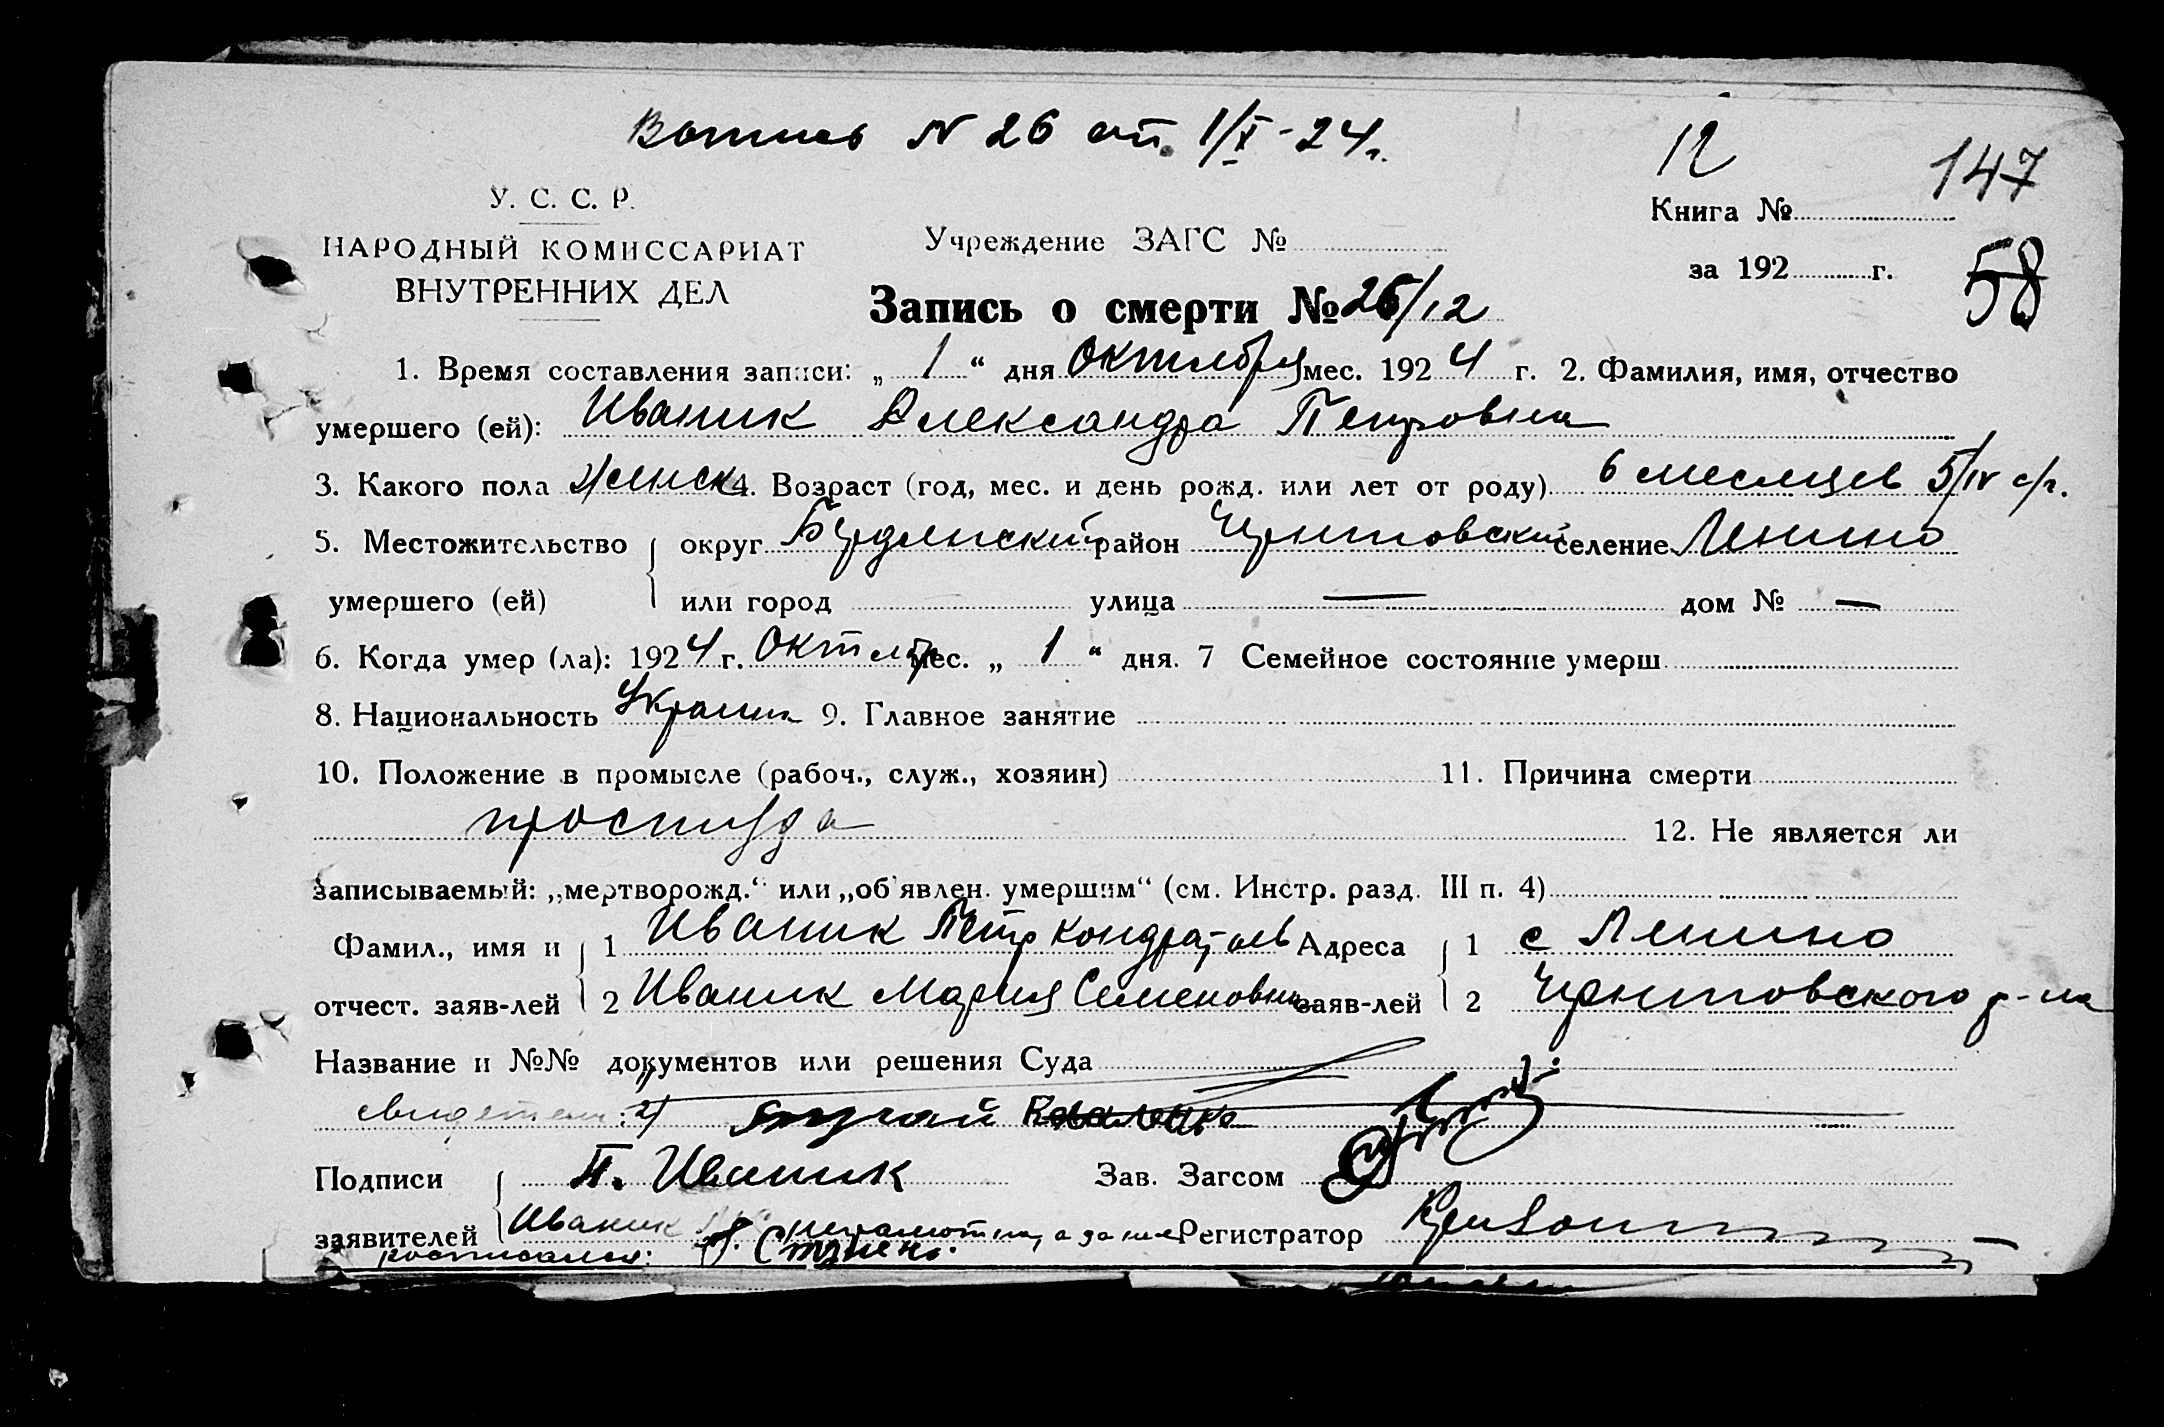 Запись N 26 от 1/X-24г.
12
147
У. С. С. Р.
НАРОДНЫЙ КОМИССАРИАТ
ВНУТРЕННИХ ДЕЛ
Учреждение ЗАГС №
Книга №
за 192 г.
58
Запись о смерти № 26/12
1. Время составления записи: „ 1 “ дня Октября мес. 192 4 г. 2. Фамилия, имя, отчество
умершего (ей): Иваник Александра Петровна
3. Какого пола женск 4. Возраст (год, мес. и день рожд. или лет от роду) 6 месяцев 5/IV с/г.
5. Местожительство округ район селение Ленино
умершего (ей) или город улица — дом № —
6. Когда умер (ла): 192 4 г. Октябр мес. „ 1 “ дня. 7 Семейное состояние умерш
8. Национальность Украин 9. Главное занятие
10. Положение в промысле (рабоч., служ., хозяин) 11. Причина смерти
простуда 12. Не является ли
записываемый: „мертворожд.“ или „об'явлен. умершим“ (см. Инстр. разд. III п. 4)
Фамил., имя и 1 Иваник Петр Кондратьев Адреса 1 с Ленино
отчест. заяв-лей 2 Иваник Мария Семеновна заяв-лей 2 р-на
Название и №№ документов или решения Суда
свидетели: 2)
Подписи П. Иваник Зав. Загсом
заявителей Иваник неграмотна, а за нее Регистратор
росписался: